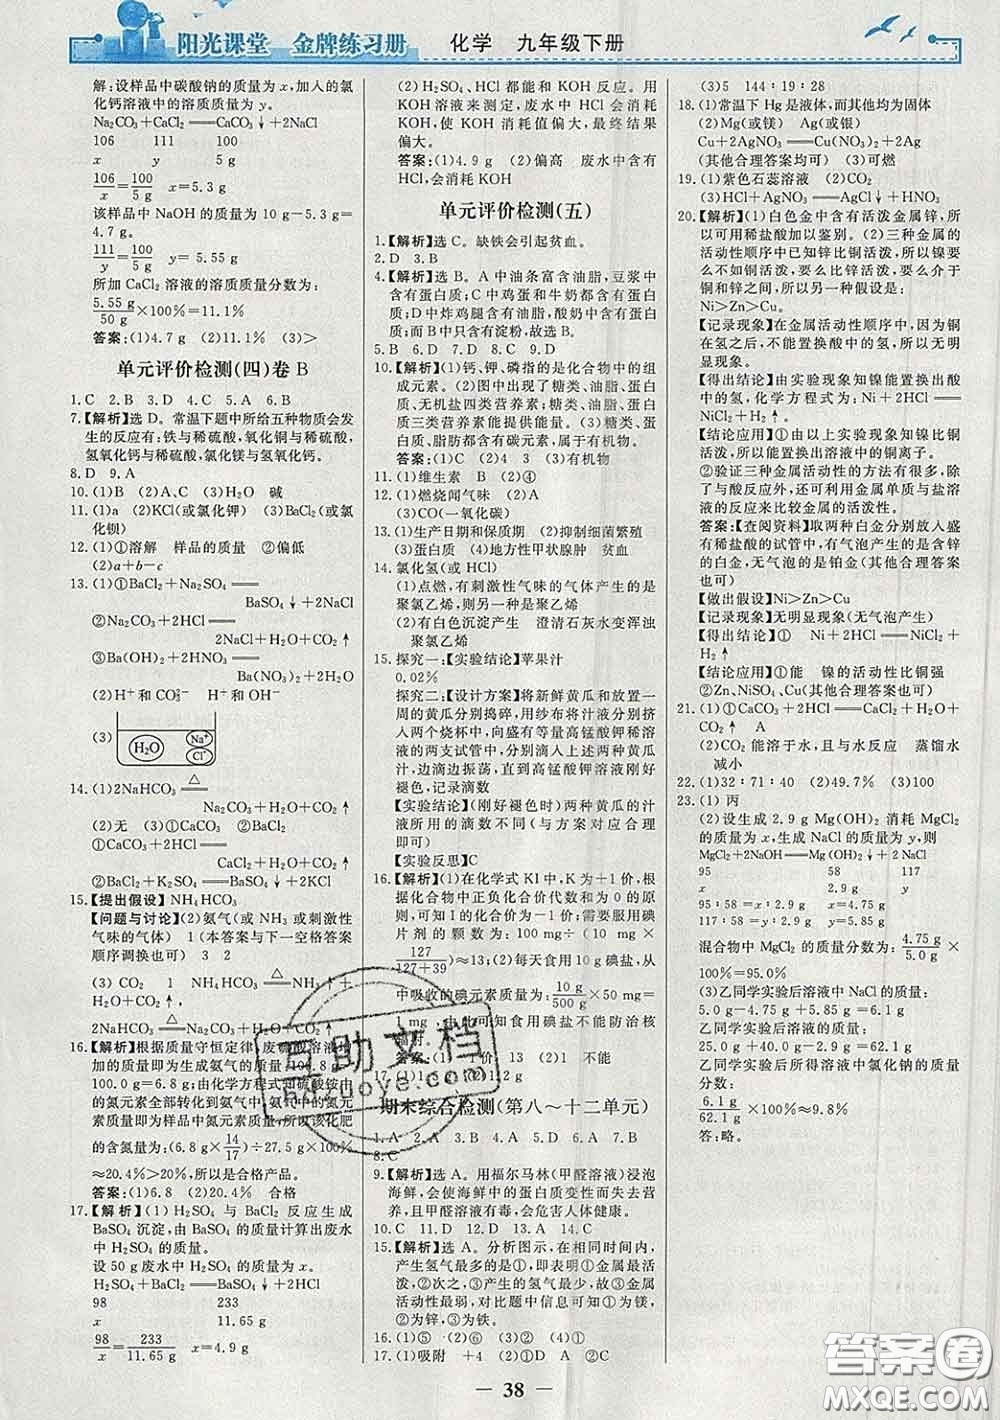 阳光课堂 金牌练习册 化学 九年级下册
解:设样品中碳酸钠的质量为x,加入的氯
化钙溶液中的溶质质量为y。
Na₂CO₃+CaCl₂══CaCO₃↓+2NaCl
106 111 100
x y 5 g
106/x=100/5 g x=5.3 g
该样品中NaOH的质量为10 g-5.3 g=
4.7 g。
111/y=100/5 g y=5.55 g
所加CaCl₂溶液的溶质质量分数为:
5.55 g/50 g×100%=11.1%
答案:(1)4.7 g (2)11.1% (3)>
单元评价检测(四)卷B
1.C 2.B 3.D 4.C 5.A 6.B
7.【解析】选D。常温下题中所给五种物质会发
生的反应有:铁与稀硫酸,氧化铜与稀硫酸,
氢氧化钙与稀硫酸,氯化镁与氢氧化钙。
8.D 9.A
10.(1)B (2)A、C (3)H₂O 碱
11.(1)a (2)KCl(或氯化钾) (3)BaCl₂(或氯
化钡)
12.(1)①溶解 样品的质量 ②偏低
(2)a+b-c
13.(1)①BaCl₂+Na₂SO₄══
BaSO₄↓+2NaCl
②Na₂CO₃+2HCl══
2NaCl+H₂O+CO₂↑
③Ba(OH)₂+2HNO₃══
Ba(NO₃)₂+2H₂O
(2)H⁺和CO₃²⁻ H⁺和OH⁻
(3) H₂O Na⁺ Cl⁻
14.(1)2NaHCO₃═△═
Na₂CO₃+H₂O+CO₂↑
(2)无 (3)①CaCO₃ ②BaCl₂
(4)①CaCO₃+2HCl══
CaCl₂+H₂O+CO₂↑
②BaCl₂+K₂SO₄══BaSO₄↓+2KCl
15.【提出假设】NH₄HCO₃
【问题与讨论】(2)氨气(或NH₃或刺激性
气味的气体) 1(本答案与下一空格答案
顺序调换也可) 3 2
(3) CO₂ 1 NH₄HCO₃═△═NH₃↑+
CO₂↑+H₂O
2NaHCO₃═△═Na₂CO₃+H₂O+CO₂↑
16.【解析】根据质量守恒定律,废硫酸溶液增
加的质量即为生成氨气的质量=106.8 g-
100.0 g=6.8 g;由化学方程式知硫酸铵中
的氮元素全部转化到氨气中,氨气中的氮元
素质量即为样品中的氮元素质量,所以该化肥
的含氮量为:(6.8 g×14/17)÷27.5 g×100%
≈20.4%>20%,所以是合格产品。
答案:(1)6.8 (2)20.4% 合格
17.【解析】(1)H₂SO₄与BaCl₂反应生成
BaSO₄沉淀,由BaSO₄的质量计算出废水
中H₂SO₄的质量。
设50 g废水中H₂SO₄的质量为x。
H₂SO₄+BaCl₂══BaSO₄↓+2HCl
98 233
x 11.65 g
98/x=233/11.65 g x=4.9 g
(2)H₂SO₄、HCl都能和KOH反应。用
KOH溶液来测定,废水中HCl会消耗
KOH,使KOH消耗值偏大,最终结果
偏大。
答案:(1)4.9 g (2)偏高 废水中含有
HCl,会消耗KOH
单元评价检测(五)
1.【解析】选C。缺铁会引起贫血。
2.D 3.B
4.【解析】选B。A中油条富含油脂,豆浆中
含有蛋白质;C中鸡蛋和牛奶都含有蛋白
质;D中炸鸡腿含有油脂,酸奶中含有蛋白
质;而B中只含有淀粉,故选B。
5.B 6.D 7.B 8.D 9.D
10.【解析】(1)钙、钾、磷指的是化合物中的组
成元素。(2)图中出现了糖类、油脂、蛋白
质、无机盐四类营养素;糖类、油脂、蛋白
质三类营养素能提供能量。(3)糖类、蛋白
质、脂肪都含有碳元素,属于有机物。
答案:(1)C (2)4 3 (3)有机物
11.(1)维生素 B (2)④
12.(1)燃烧闻气味 (2)⑤
(3)CO(一氧化碳)
13.(1)生产日期和保质期 (2)抑制细菌繁殖
(3)蛋白质 (4)地方性甲状腺肿 贫血
14.氯化氢(或HCl)
(1)点燃,有刺激性气味的气体产生的是
聚氯乙烯,则另一种是聚乙烯
(2)有白色沉淀产生 澄清石灰水变浑浊
聚氯乙烯
15.探究一:【实验结论】苹果汁
0.02%
探究二:【设计方案】将新鲜黄瓜和放置一
周的黄瓜分别捣碎,用纱布将汁液分别挤
入两个烧杯中,向盛有等量高锰酸钾稀溶
液的两支试管中,分别滴加这两种黄瓜汁,
边滴边振荡,直到高锰酸钾溶液刚好
褪色,记录滴数
【实验结论】(刚好褪色时)两种黄瓜的汁
液所用的滴数不同(与方案对应合理
即可)
【实验反思】C
16.【解析】(1)在化学式KI中,K为+1价,根
据化合物中正负化合价代数和为0的原
则,可知I的化合价为-1价;需要服用碘
片剂的颗数为:100 mg÷(10 mg×
127/(127+39))≈13;(2)每天食用10 g碘盐,从
中吸收的碘元素质量为:10 g/500 g×50 mg=
1 mg,由此可知食用碘盐不能防治核
辐射。
答案:(1)-1价 13 (2)1 不能
期末综合检测(第八～十二单元)
1.A 2.A 3.A 4.C 5.D 6.A 7.B
8.C
9.【解析】选A。用福尔马林(甲醛溶液)浸泡
海鲜,会使海鲜中的蛋白质变性而失去营
养,且甲醛溶液有毒,会危害人体健康。
10.C 11.D 12.D 13.A 14.C
15.【解析】选A。分析图示,在相同时间内,
产生氢气最多的是①,即表明①最活泼,
②次之,③产生的氢气最少,故③金属
活动性最弱,对比题中信息可知①为镁,
②为锌,③为铁。
16.(1)⑤ (2)⑥ (3)④ (4)② (5)①
17.(1)吸附 +4 (2)①D A ②C
(3)5 144∶19∶28
18.(1)常温下Hg是液体,而其他均为固体
(2)Mg(或镁) Ag(或银)
Cu+2AgNO₃══Cu(NO₃)₂+2Ag
(其他合理答案均可) (3)可燃
19.(1)紫色石蕊溶液 (2)CO₂
(3)HCl+AgNO₃══AgCl↓+HNO₃
20.【解析】(1)白色金中含有活泼金属锌,所
以可用稀盐酸加以鉴别。(2)三种金属的
活动性顺序中已知锌比铜活泼,所以镍要
么比铜活泼,要么比锌活泼,要么介于
铜和锌之间,所以另一种假设是:
Ni>Zn>Cu。
【记录现象】在金属活动性顺序中,因为铜
在氢之后,不能置换酸中的氢,所以无明
显现象。
【得出结论】由实验现象知镍能置换出酸
中的氢,化学方程式为:Ni+2HCl══
NiCl₂+H₂↑。
【结论应用】①由以上实验现象知镍比铜
活泼,所以能置换出溶液中的铜离子。
②验证三种金属活动性的方法有很多,除
了与酸反应外,还可利用金属单质与盐溶
液的反应来比较金属的活泼性。
答案:【查阅资料】取两种白金分别放入盛
有稀盐酸的试管中,有气泡产生的是含锌
的白金,无气泡的是铂金(其他合理答案
也可)
【做出假设】Ni>Zn>Cu
【记录现象】无明显现象(无气泡产生)
【得出结论】① Ni+2HCl══NiCl₂+
H₂↑
【结论应用】①能 镍的活动性比铜强
②Zn、NiSO₄、Cu(其他合理答案也可)
21.(1)①CaCO₃+2HCl══CaCl₂+H₂O+
CO₂↑ A
(2)CO₂能溶于水,且与水反应 蒸馏水
减小
22.(1)32∶71∶40 (2)49.7% (3)100
23.(1)丙
(2)设生成2.9 g Mg(OH)₂消耗MgCl₂
的质量为x,生成NaCl的质量为y,则
MgCl₂+2NaOH══Mg(OH)₂↓+2NaCl
95 58 117
x 2.9 g y
95∶58=x∶2.9 g x=4.75 g
117∶58=y∶2.9 g y=5.85 g
混合物中MgCl₂的质量分数为:4.75 g/5.0 g×
×100%=95.0%
(3)乙同学实验后溶液中NaCl的质量:
5.0 g-4.75 g+5.85 g=6.1 g
乙同学实验后溶液的质量:
25.0 g+40.0 g-2.9 g=62.1 g
乙同学实验后所得溶液中氯化钠的质量
分数:
6.1 g/62.1 g×100%≈9.8%
答:略。
38
互助文档
答案圈
MXQE.COM